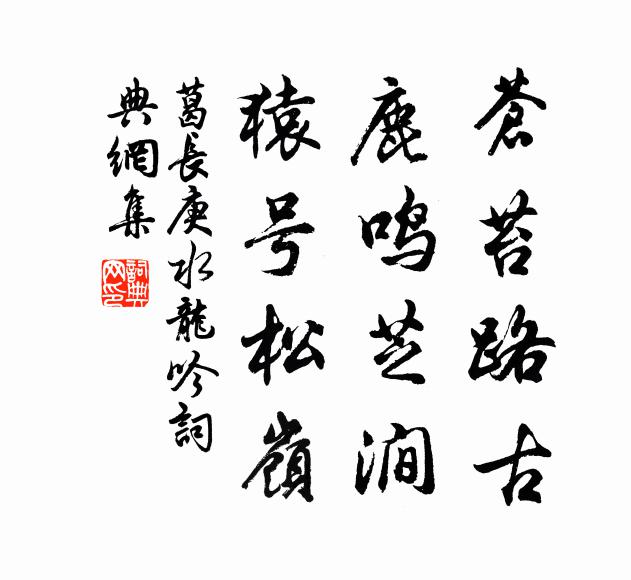 蒼苔路古
鹿鸣芝澗
猿号松嶺
葛長庚水龍吟詞
典網集
詞典網印